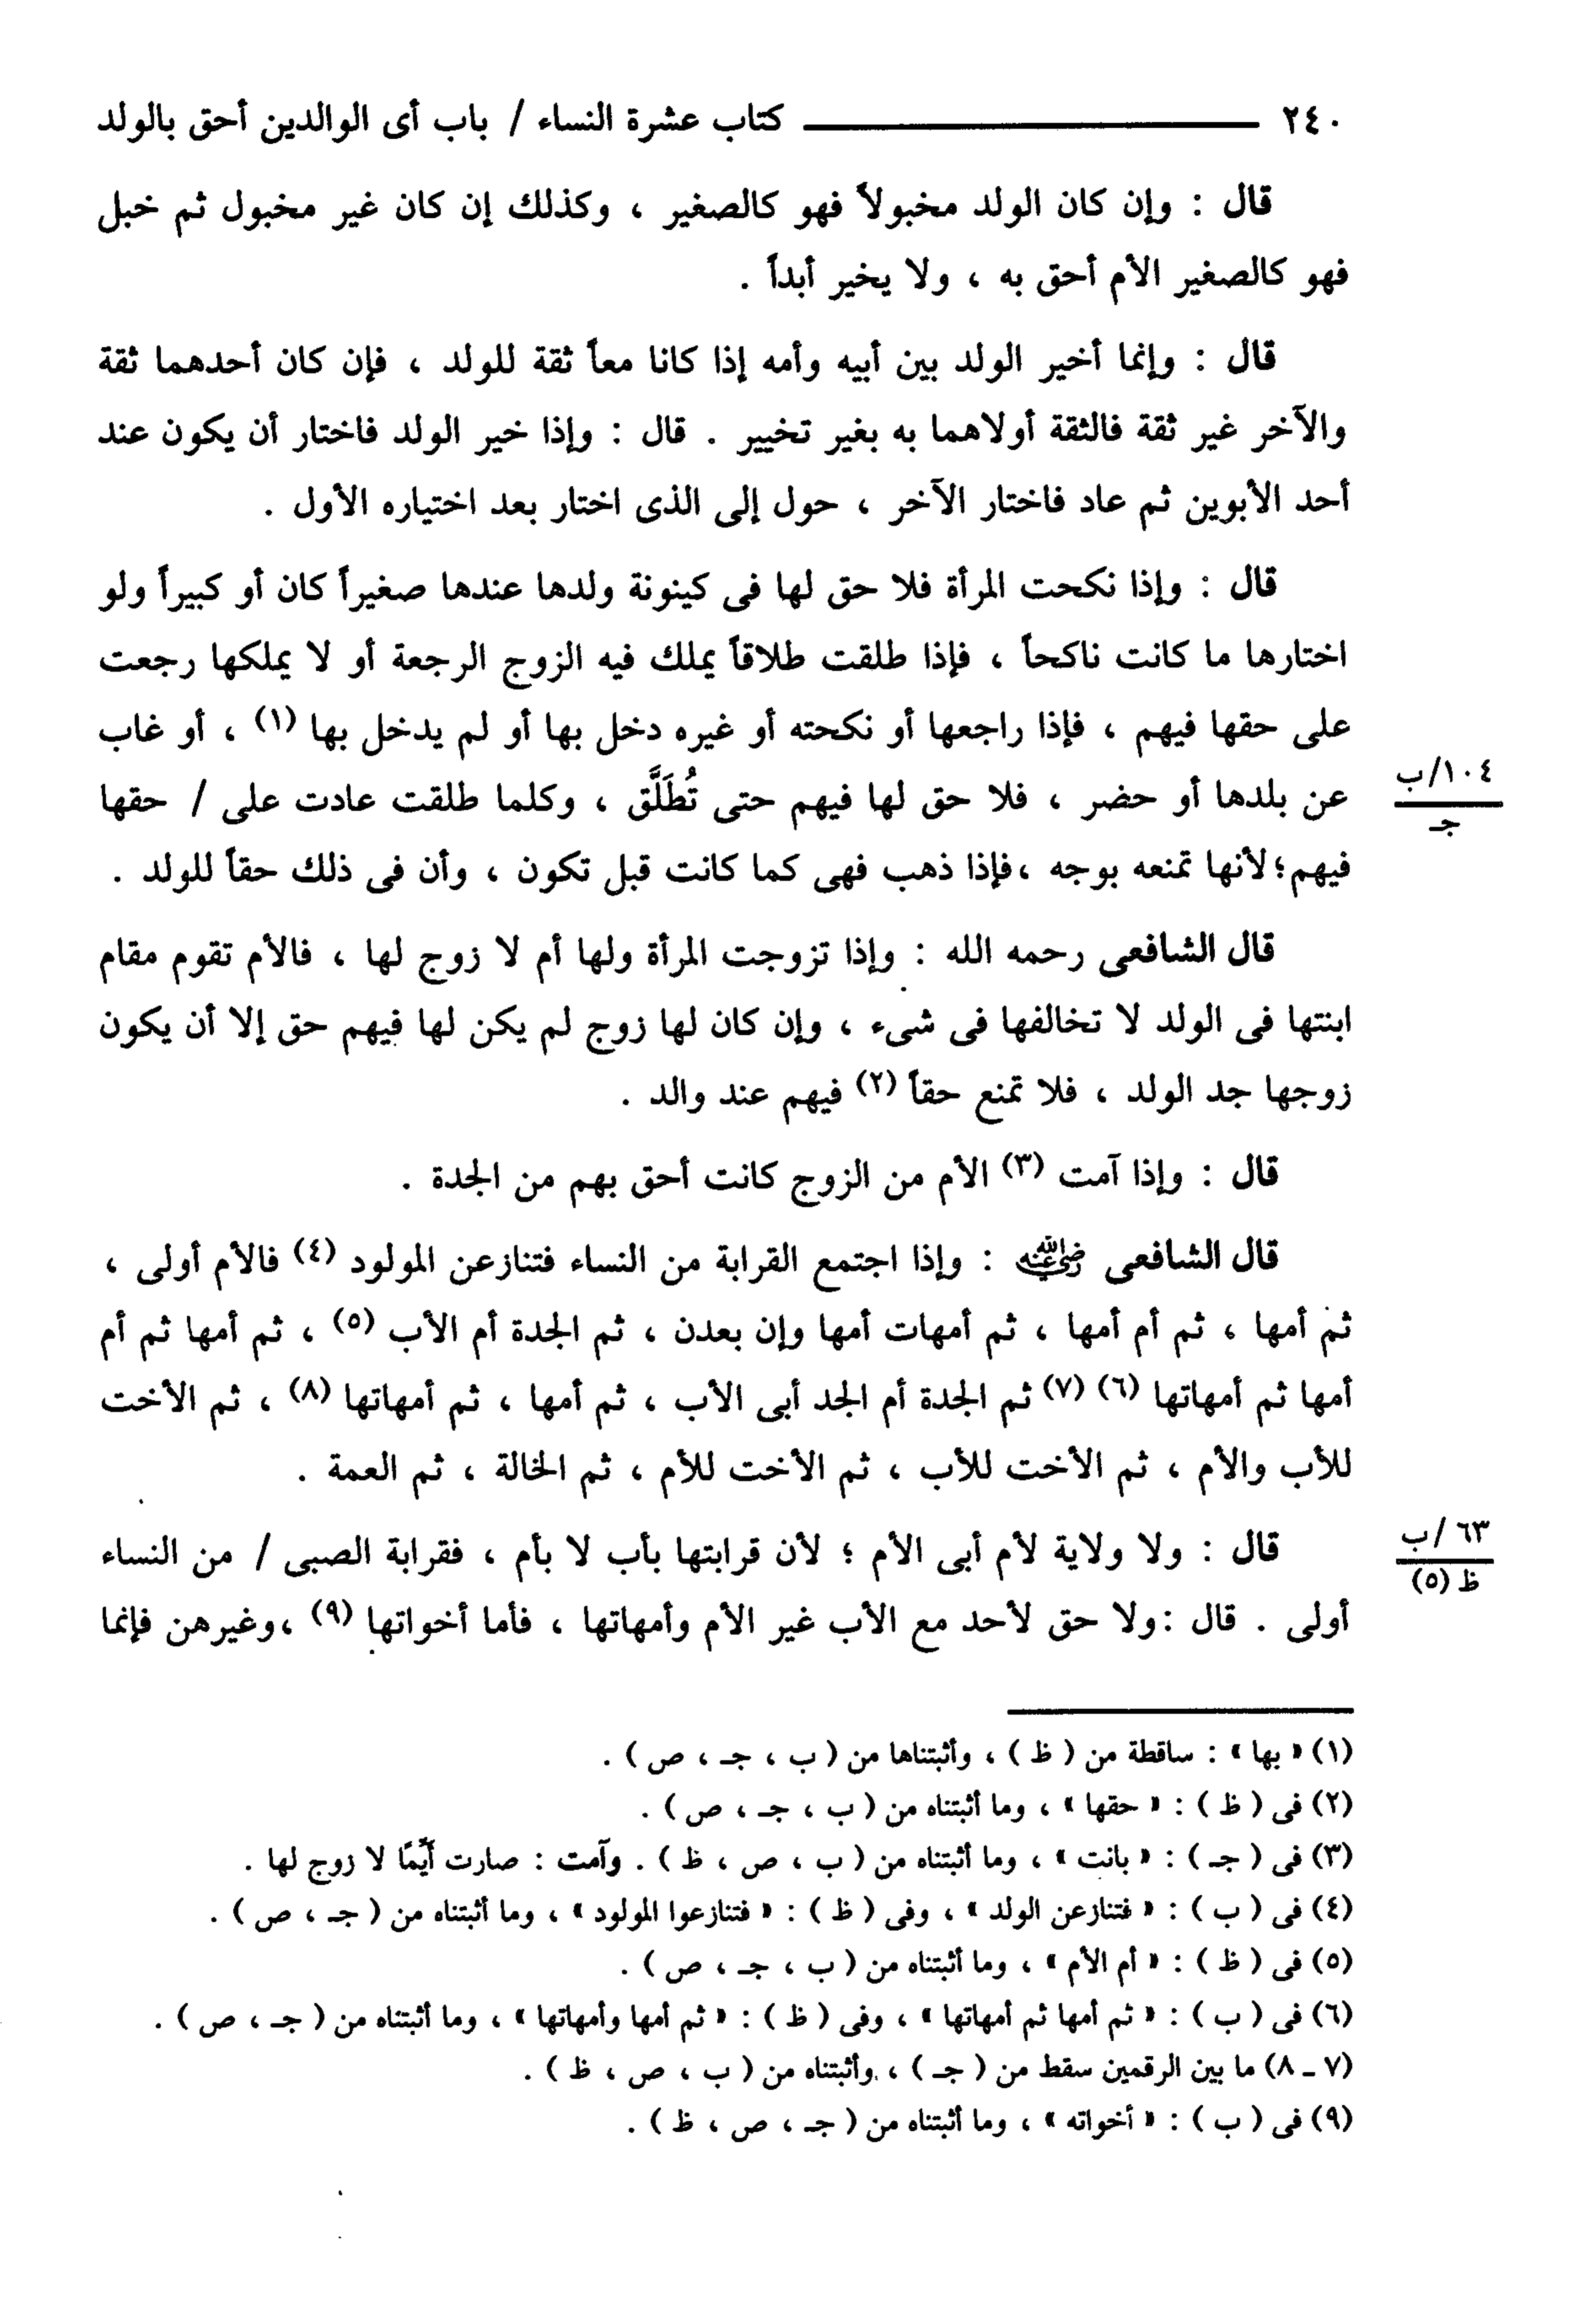 ٢٤٠ ـــــــــــــــ كتاب عشرة النساء / باب أى الوالدين أحق بالولد
قال : وإن كان الولد مخبولاً فهو كالصغير ، وكذلك إن كان غير مخبول ثم خبل
فهو كالصغير الأم أحق به ، ولا يخير أبداً .
قال : وإنما أخير الولد بين أبيه وأمه إذا كانا معاً ثقة للولد ، فإن كان أحدهما ثقة
والآخر غير ثقة فالثقة أولاهما به بغير تخيير . قال : وإذا خير الولد فاختار أن يكون عند
أحد الأبوين ثم عاد فاختار الآخر ، حول إلى الذى اختار بعد اختياره الأول .
قال : وإذا نكحت المرأة فلا حق لها فى كينونة ولدها عندها صغيراً كان أو كبيراً ولو
اختارها ما كانت ناكحاً ، فإذا طلقت طلاقاً يملك فيه الزوج الرجعة أو لا يملكها رجعت
على حقها فيهم ، فإذا راجعها أو نكحته أو غيره دخل بها أو لم يدخل بها (١) ، أو غاب
عن بلدها أو حضر ، فلا حق لها فيهم حتى تُطَلَّق ، وكلما طلقت عادت على / حقها
١٠٤/ب
جـ
فيهم؛ لأنها تمنعه بوجه ،فإذا ذهب فهى كما كانت قبل تكون ، وأن فى ذلك حقاً للولد .
قال الشافعى رحمه الله : وإذا تزوجت المرأة ولها أم لا زوج لها ، فالأم تقوم مقام
ابنتها فى الولد لا تخالفها فى شىء ، وإن كان لها زوج لم يكن لها فيهم حق إلا أن يكون
زوجها جد الولد ، فلا تمنع حقاً (٢) فيهم عند والد .
قال : وإذا آمت (٣) الأم من الزوج كانت أحق بهم من الجدة .
قال الشافعى رضي الله عنه : وإذا اجتمع القرابة من النساء فتنازعن المولود (٤) فالأم أولى ،
ثم أمها ، ثم أم أمها ، ثم أمهات أمها وإن بعدن ، ثم الجدة أم الأب (٥) ، ثم أمها ثم أم
أمها ثم أمهاتها (٦) (٧) ثم الجدة أم الجد أبى الأب ، ثم أمها ، ثم أمهاتها (٨) ، ثم الأخت
للأب والأم ، ثم الأخت للأب ، ثم الأخت للأم ، ثم الخالة ، ثم العمة .
قال : ولا ولاية لأم أبى الأم ؛ لأن قرابتها بأب لا بأم ، فقرابة الصبى / من النساء
٦٣ /ب
ظ (٥)
أولى . قال :ولا حق لأحد مع الأب غير الأم وأمهاتها ، فأما أخواتها (٩) ،وغيرهن فإنما
(١) « بها » : ساقطة من ( ظ ) ، وأثبتناها من ( ب ، جـ ، ص ) .
(٢) فى ( ظ ) : « حقها » ، وما أثبتناه من ( ب ، جـ ، ص ) .
(٣) فى ( جـ ) : « بانت » ، وما أثبتناه من ( ب ، ص ، ظ ) . وآمت : صارت أَيِّمًا لا زوج لها .
(٤) فى ( ب ) : « فتنازعن الولد » ، وفى ( ظ ) : « فتنازعوا المولود » ، وما أثبتناه من ( جـ ، ص ) .
(٥) فى ( ظ ) : « أم الأم » ، وما أثبتناه من ( ب ، جـ ، ص ) .
(٦) فى ( ب ) : « ثم أمها ثم أمهاتها » ، وفى ( ظ ) : « ثم أمها وأمهاتها » ، وما أثبتناه من ( جـ ، ص ) .
(٧ ـ ٨) ما بين الرقمين سقط من ( جـ ) ، وأثبتناه من ( ب ، ص ، ظ ) .
(٩) فى ( ب ) : « أخواته » ، وما أثبتناه من ( جـ ، ص ، ظ ) .